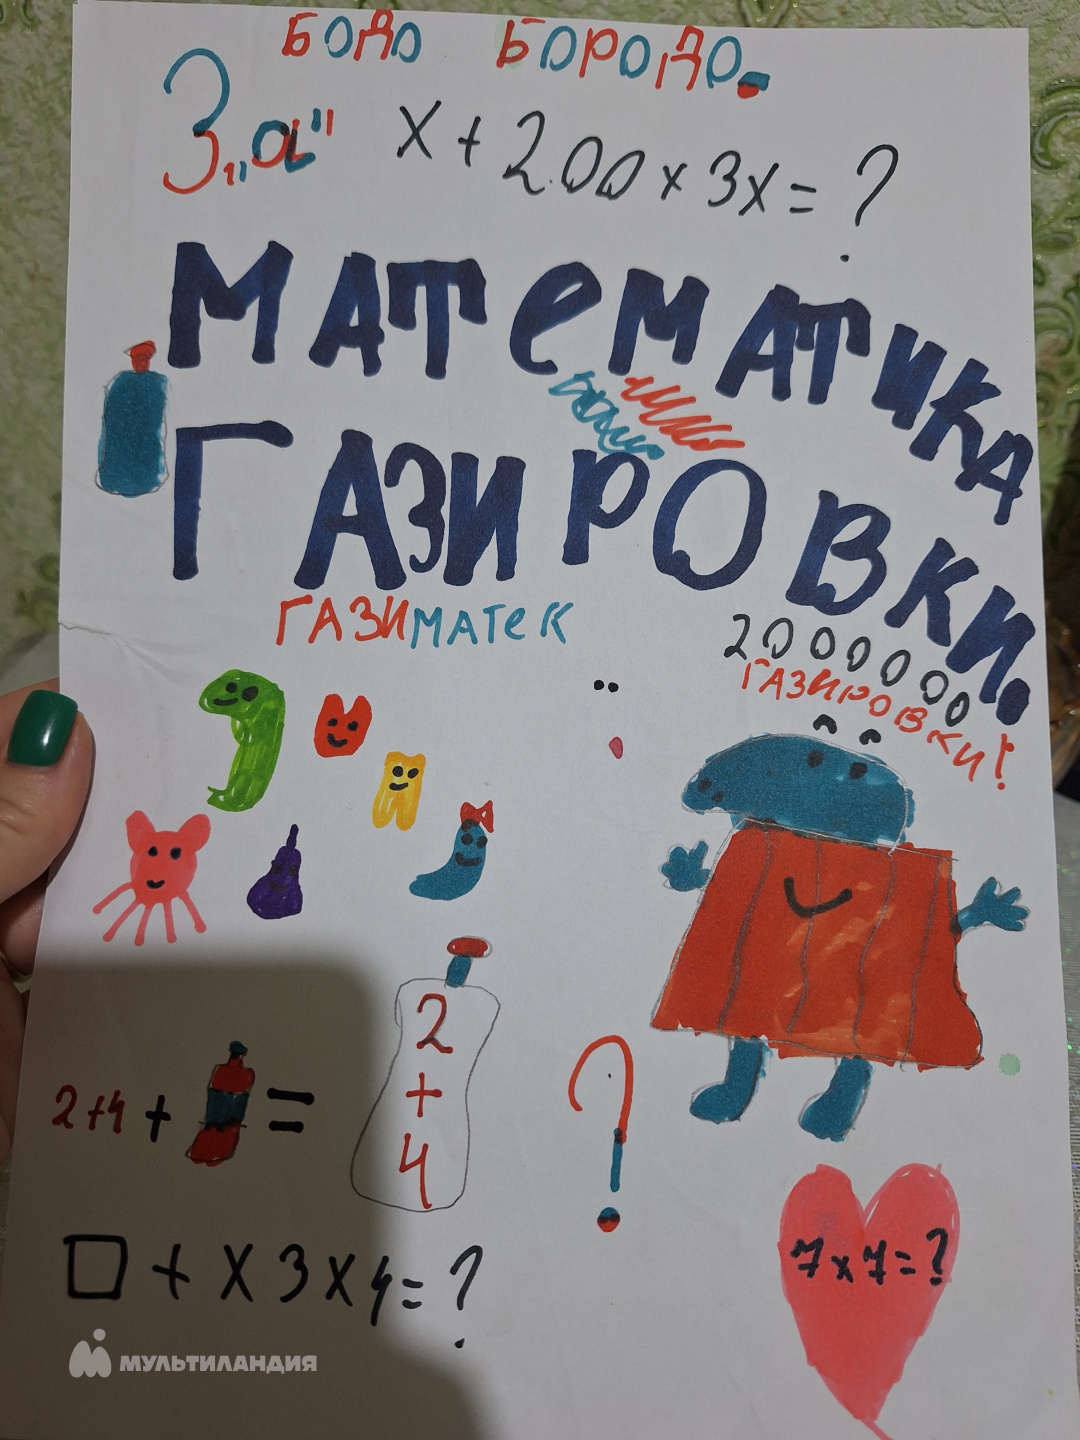 БОДО БОРОДО.
3 „а" x + 200 x 3x = ?
МАТеМАТИКА
ГАЗИРОВКИ.
ГАЗИМАТеК
20000000
ГАЗИРОВКИ!
2+4 + = 2 + 4 ?
□ + x 3 x 4 = ?
7 x 7 = ?
МУЛЬТИЛАНДИЯ